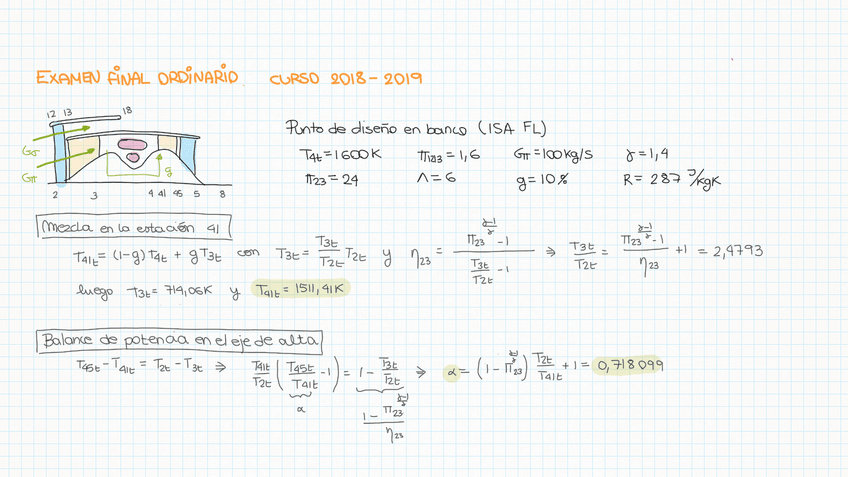 EXAMEN FINAL ORDINARIO. CURSO 2018-2019
12 13 18
Gσ
Gπ
g
2 3 4 41 45 5 8
Punto de diseño en banco (ISA FL)
T4t = 1600K π123 = 1,6 Gπ = 100 kg/s γ = 1,4
π23 = 24 Λ = 6 g = 10% R = 287 J/kgK
Mezcla en la estación 41
T41t = (1-g) T4t + g T3t con T3t = T3t/T2t T2t y η23 = (π23^((γ-1)/γ) - 1)/(T3t/T2t - 1) ⇒ T3t/T2t = (π23^((γ-1)/γ) - 1)/η23 + 1 = 2,4793
luego T3t = 714,06K y T41t = 1511,41K
Balance de potencia en el eje de alta
T45t - T41t = T2t - T3t ⇒ T41t/T2t (T45t/T41t - 1) = 1 - T3t/T2t ⇒ α = (1 - π23^((γ-1)/γ)) T2t/T41t + 1 = 0,718099
α
(1 - π23^((γ-1)/γ))/η23